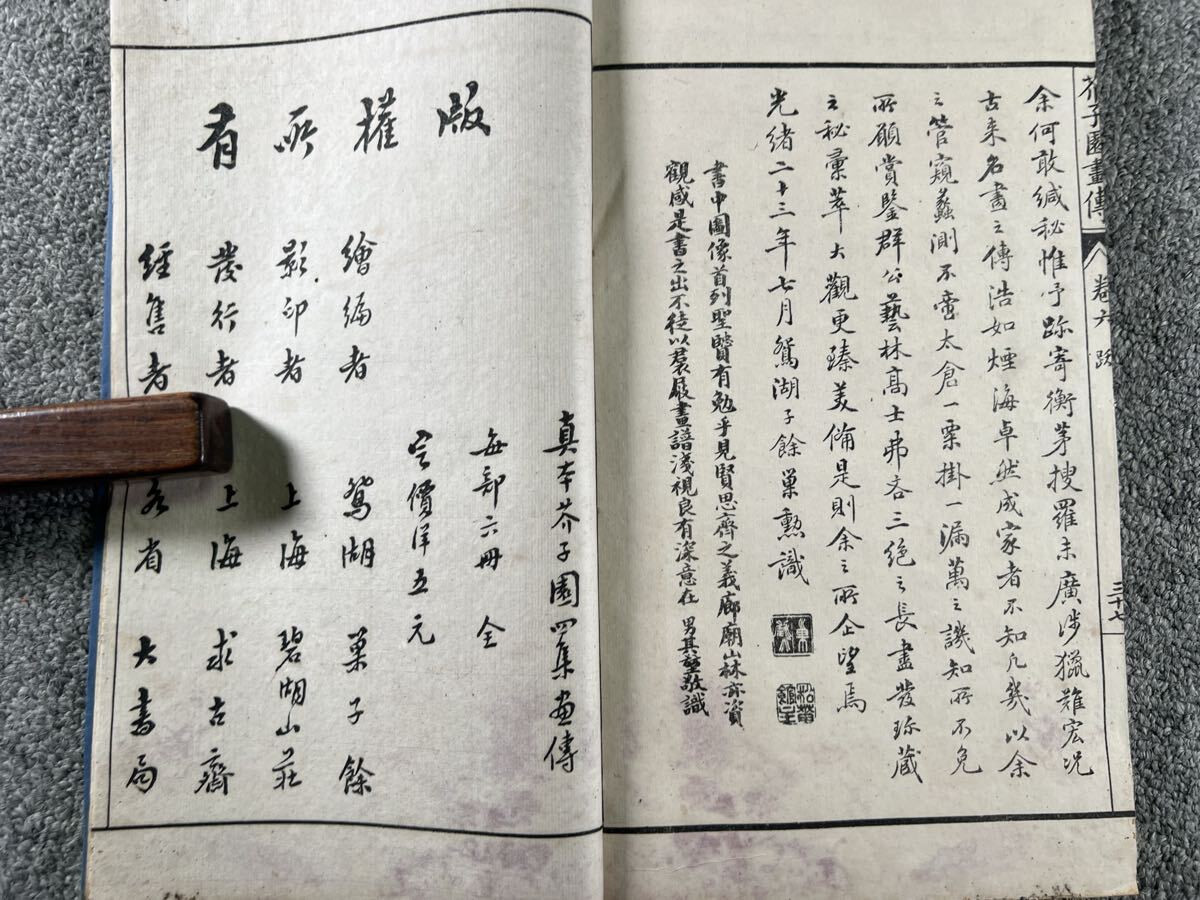 芥子園畫傳 卷六 跋 三十七
余何敢緘秘惟予跡寄衡茅搜羅未廣涉獵難宏況
古來名畵之傳浩如煙海卓然成家者不知凡幾以余
之管窺蠡測不啻太倉一粟掛一漏萬之譏知所不免
所願賞鑒群公藝林高士弗吝三絕之長盡發珍藏
之秘彙萃大觀更臻美備是則余之所企望焉
光緒二十三年七月鴛湖子餘巢勲識
書中圖像首列聖賢有勉乎見賢思齊之義廊廟山林亦資
觀感是書之出不徒以羣展畫譜淺視良有深意在 男其敬識
版權所有
真本芥子園四集画傳
每部六冊 全
定價洋五元
繪編者 鴛湖 巢子餘
影印者 上海 碧湖山莊
發行者 上海 求古齋
經售者 各省 大書局